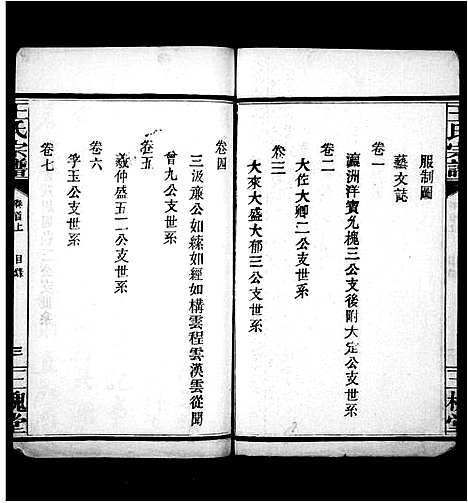 王氏宗譜
服制圖
藝文誌
卷一
瀛洲洋寶允槐三公支後附大定公支世系
卷二
大佐大卿二公支世系
卷三
大來大盛大郁三公支世系
三槐堂
卷四
三汲承公如綠如經如構雲程雲漢雲從聞
曾九公支世系
卷五
仲盛五二公支世系
卷六
孚玉公支世系
卷七
王氏宗譜
卷首上
目錄
三
三槐堂